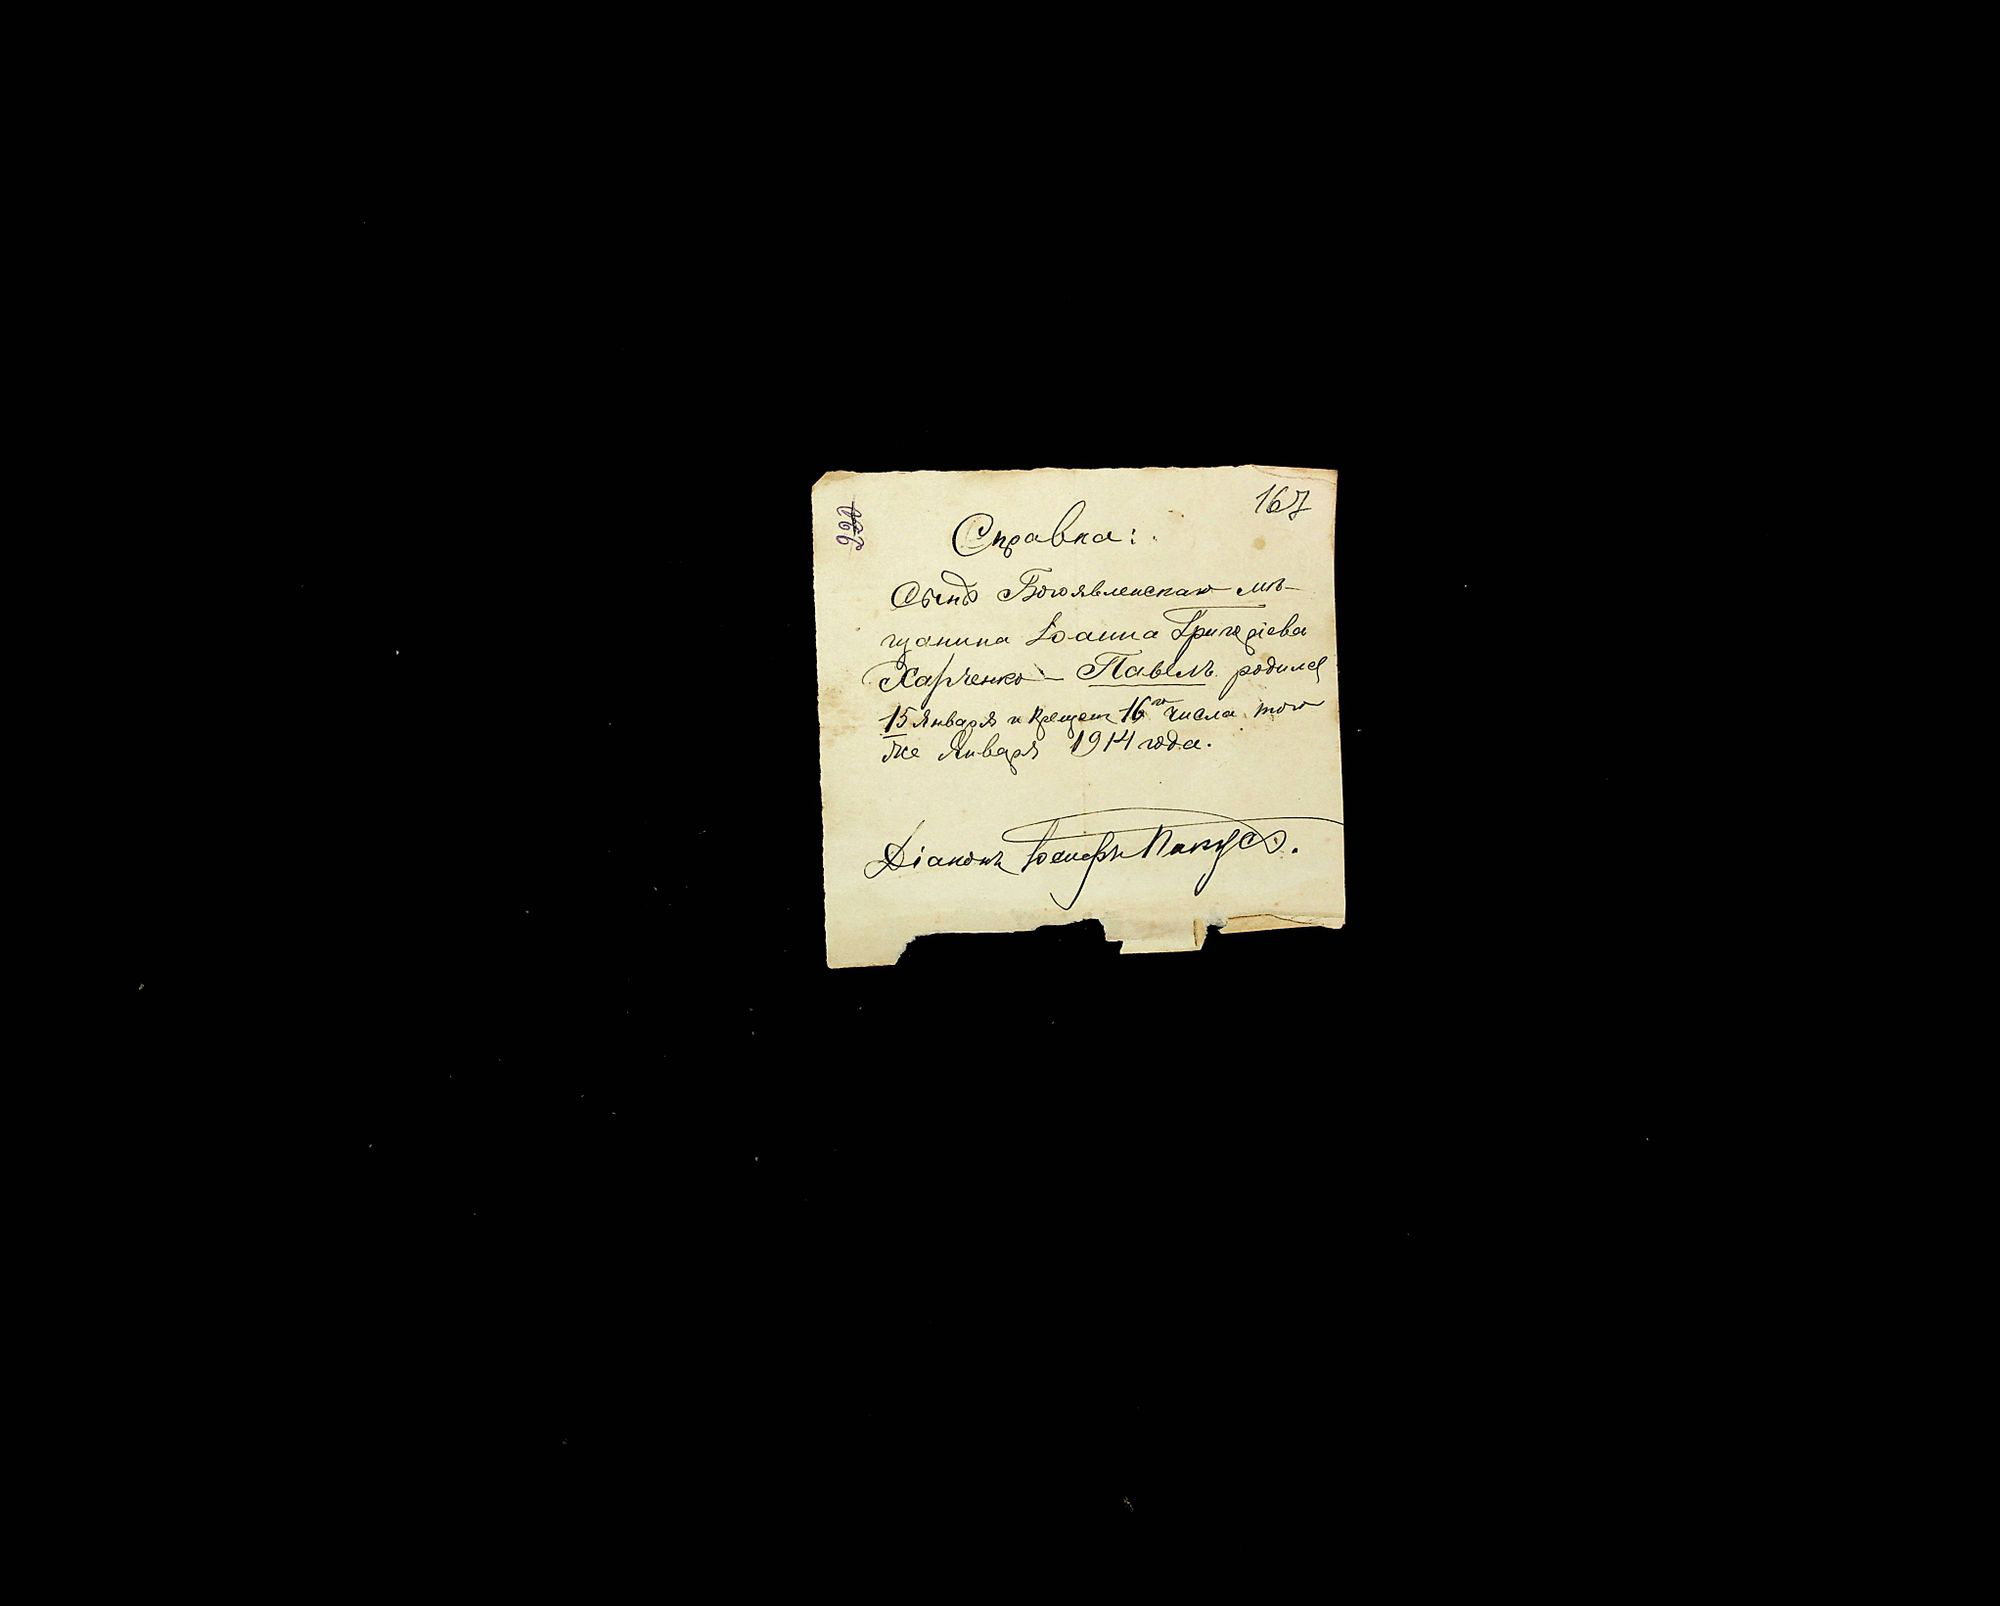 167
220
Справка:
Сынъ Богоявленскаго мѣ-
щанина Іоанна Григоріева
Харченко - Павелъ родился
15 Января и крещен 16го числа того
же Января 1914 года.
Діаконъ Іосифъ